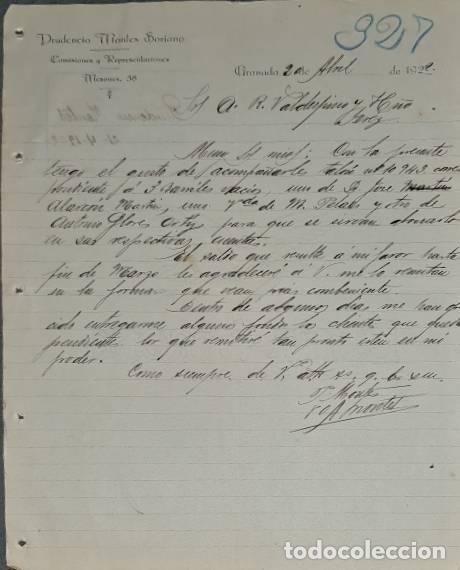 327
Prudencio Montes Soriano
Comisiones y Representaciones
Mesones, 38
Granada 2 de Abril de 1922
A. R. Valdespino y Hno
Jerez
Muy Sr mios: Con la presente
tengo el gusto de acompañarle talón nº 10943 corres
pondiente pª 3 barriles vacios, uno de D. Jose
Alarcón Martin, uno Vda de M. Pelaez y otro de
Antonio Flores Ortiz para que se sirvan abonarlo
en sus respectivas cuentas.
El saldo que resulte á mi favor hasta
fin de Marzo le agradeceré á V. me lo remitan
en la forma que vean más conveniente.
Dentro de algunos dias me han ofre
cido entregarme algunos fondos los clientes que quedan
pendientes los que remitiré tan pronto esten en mi
poder.
Como siempre de V. atto ss. q. b. s. m.
P. Montes
todocoleccion.net